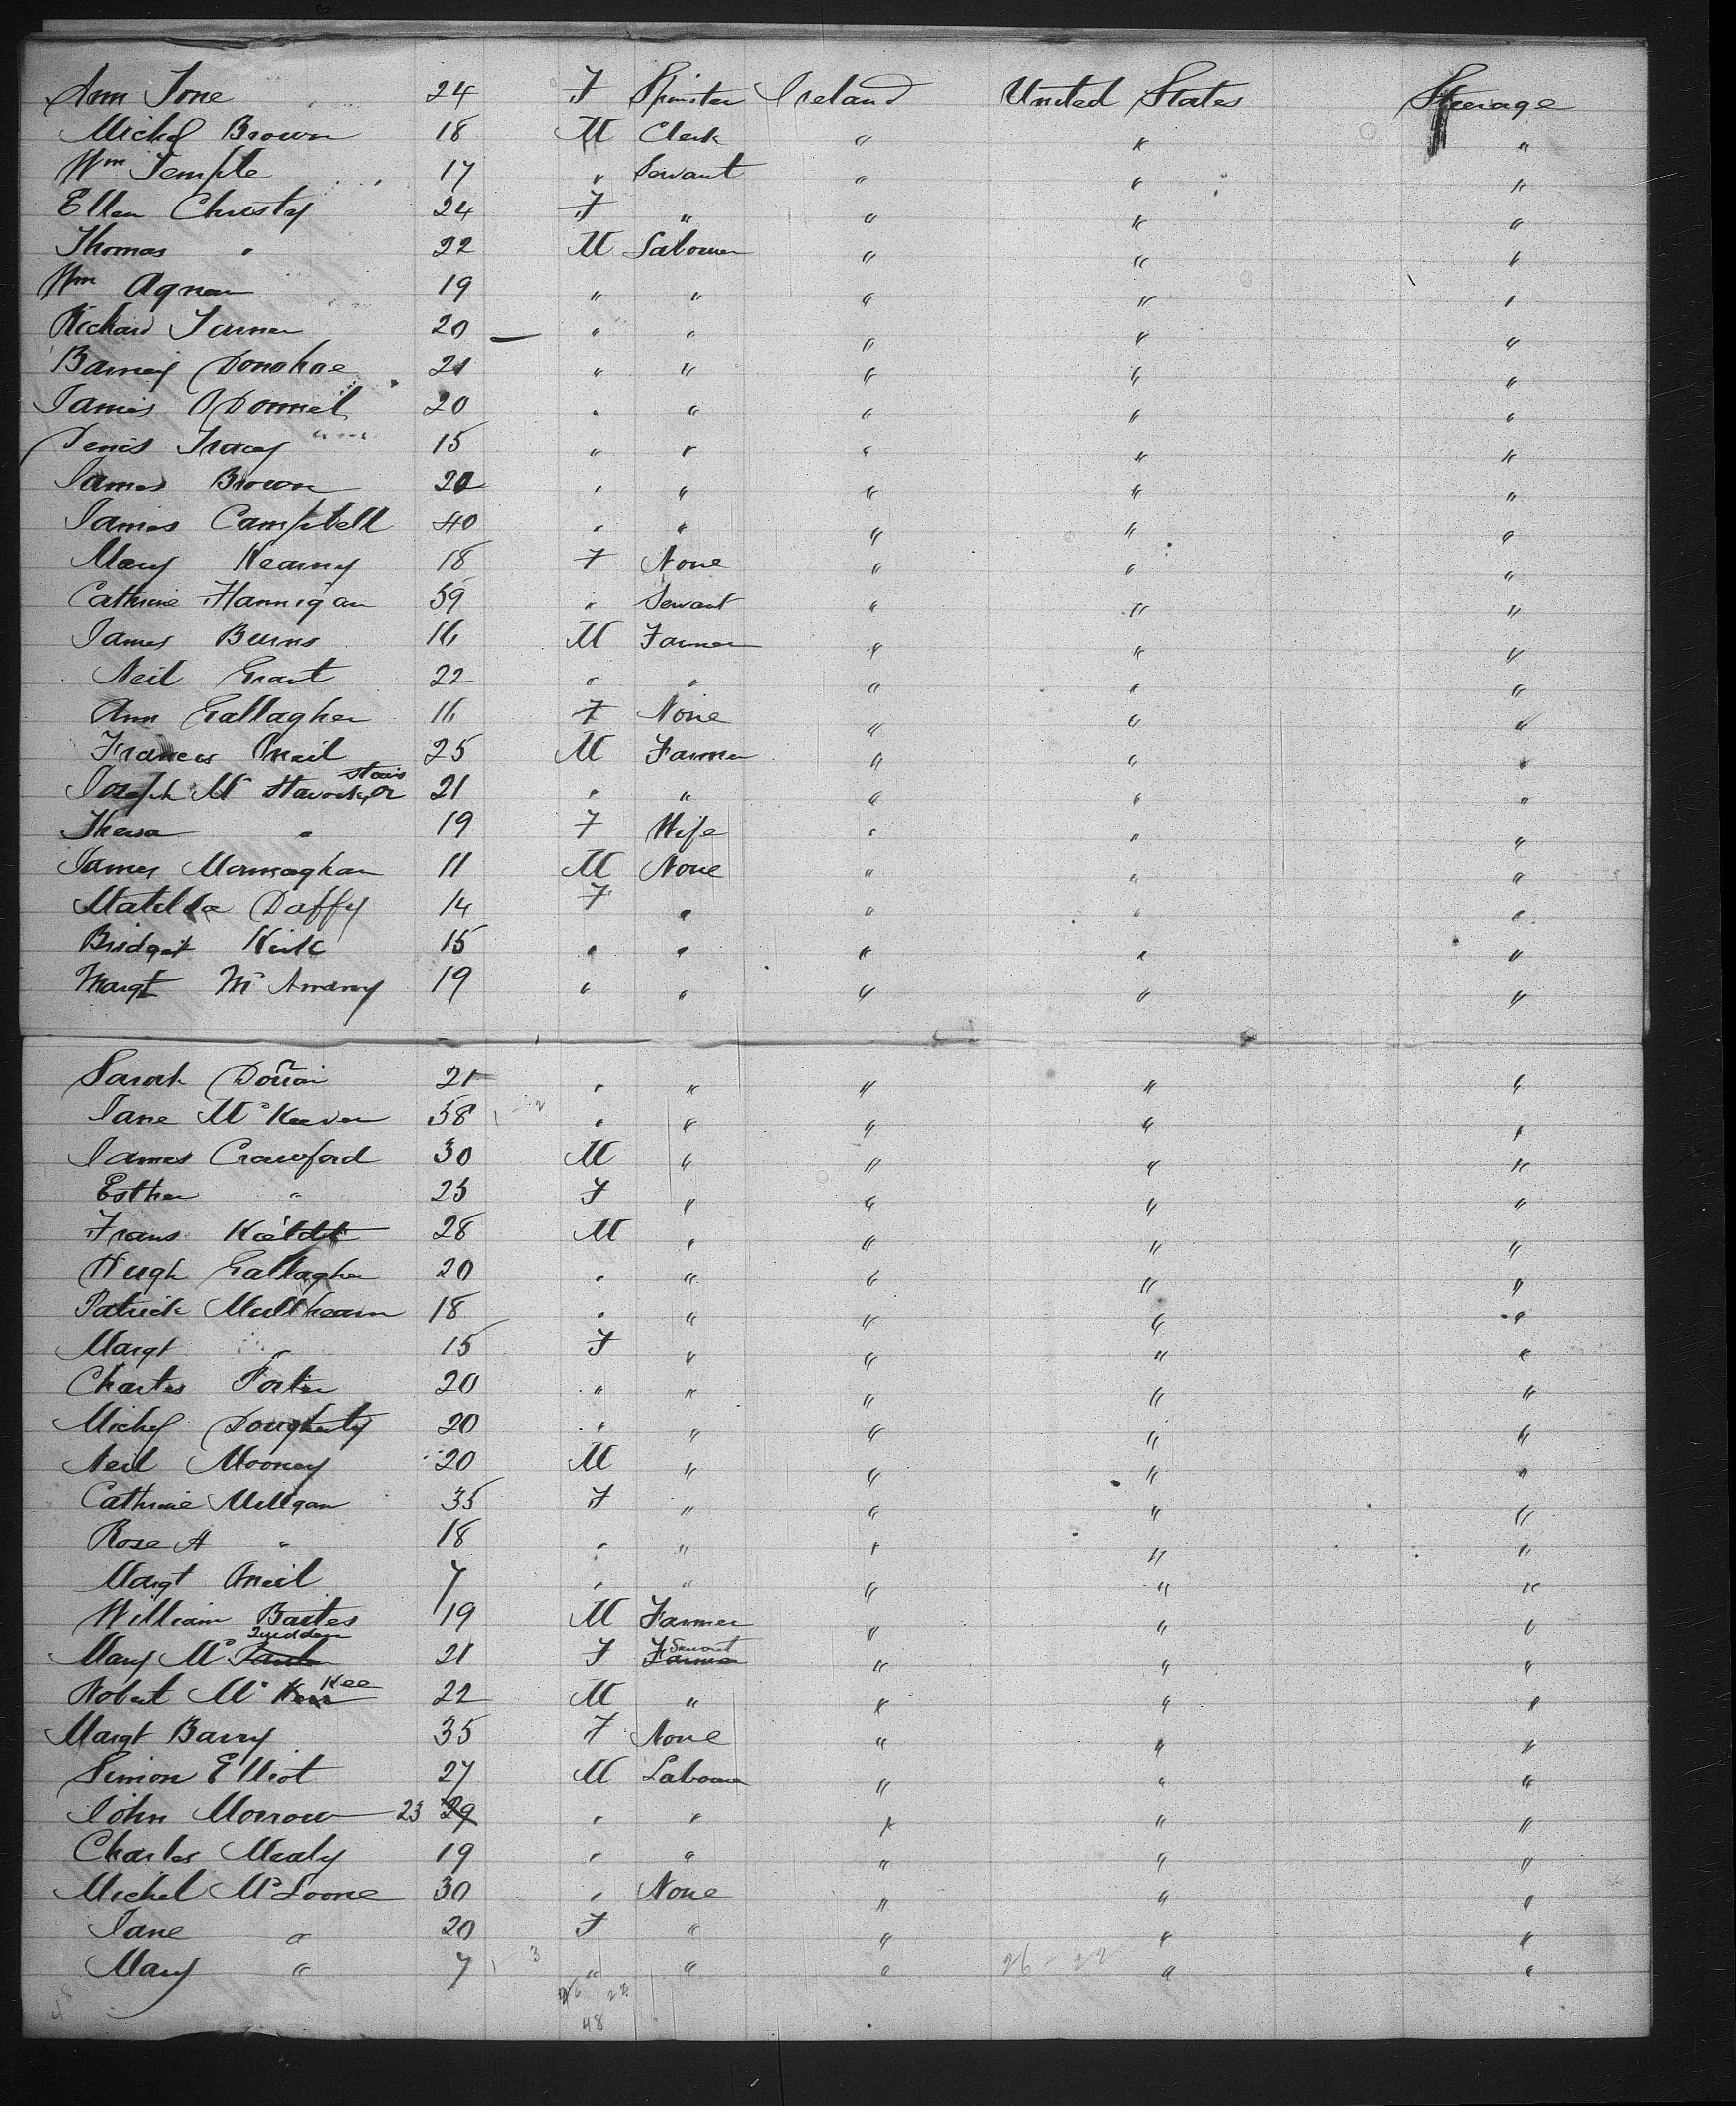 Ann Tone 24 F Spinster Ireland United States Steerage
Michel Brown 18 M Clerk " " "
Wm Temple 17 " Servant " " "
Ellen Christy 24 F " " " "
Thomas " 22 M Labourer " " "
Wm Agnew 19 " " " " "
Richard Turner 20 " " " " "
Barney Donohoe 21 " " " " "
James ODonnel 20 " " " " "
Denis Tracey 15 " " " " "
James Brown 20 " " " " "
James Campbell 40 " " " " "
Mary Kearny 18 F None " " "
Cathrine Hannigan 59 " Servant " " "
James Burns 16 M Farmer " " "
Neil Grant 22 " " " " "
Ann Gallagher 16 F None " " "
Francis Oneil 25 M Farmer " " "
Joseph Mc 21 " " " " "
Theresa " 19 F Wife " " "
James Monaghan 11 M None " " "
Matilda Duffy 14 F " " " "
Bridget Kirk 15 " " " " "
Margt Mc 19 " " " " "
Sarah 21 " " " " "
Jane McKeever 58 " " " " "
James Crawford 30 M " " " "
Esther " 25 F " " " "
Frans 28 M " " " "
Hugh Gallagher 20 " " " " "
Patrick Mullhearn 18 " " " " "
Margt " 15 F " " " "
Charles Porter 20 " " " " "
Michel Dougherty 20 " " " " "
Neil Mooney 20 M " " " "
Cathrine Milligan 35 F " " " "
Rose A " 18 " " " " "
Margt Oneil 7 " " " " "
William Bartes 19 M Farmer " " "
Mary Mc 21 F Servant " " "
Robert McKee 22 M " " " "
Margt Barry 35 F None " " "
Simon Elliot 27 M Labourer " " "
John Morrow 23 29 " " " " "
Charles Mealy 19 " " " " "
Michel McLoone 30 " None " " "
Jane " 20 F " " " "
Mary " 7 " " " " "
26 - 22
26 22
48